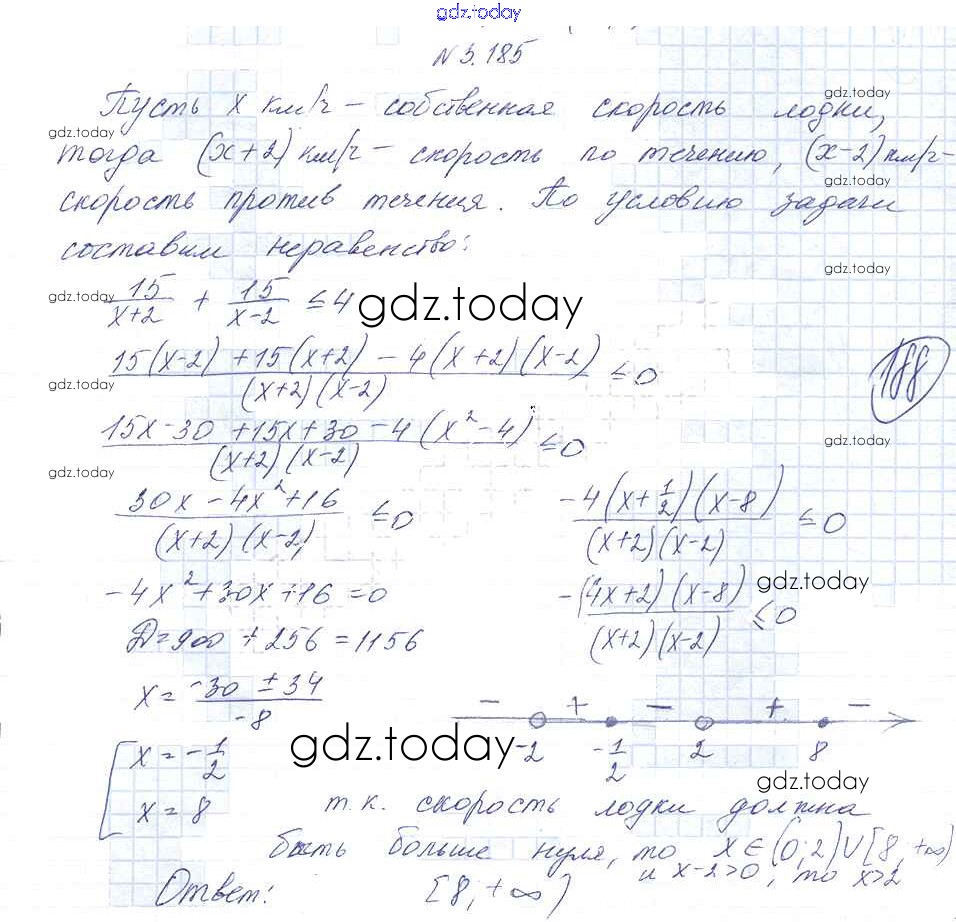 gdz.today
N 3.185
Пусть x км/ч – собственная скорость лодки,
gdz.today
тогда (x+2) км/ч – скорость по течению, (x-2) км/ч –
gdz.today
скорость против течения. По условию задачи
составим неравенство:
gdz.today
gdz.today
15/(x+2) + 15/(x-2) ≤ 4
gdz.today
(15(x-2) + 15(x+2) - 4(x+2)(x-2))/((x+2)(x-2)) ≤ 0
gdz.today
188
(15x-30+15x+30-4(x²-4))/((x+2)(x-2)) ≤ 0
gdz.today
gdz.today
(30x-4x²+16)/((x+2)(x-2)) ≤ 0
-4x²+30x+16=0
D=900+256=1156
x = (-30±34)/-8
[x = -1/2
x = 8
gdz.today
-4(x+1/2)(x-8)/((x+2)(x-2)) ≤ 0
gdz.today
-(4x+2)(x-8)/((x+2)(x-2)) ≤ 0
– + – + –
-2 -1/2 2 8
gdz.today
т.к. скорость лодки должна
быть больше нуля, то x∈(0;2)∪[8,+∞)
и x-2>0, то x>2
Ответ: [8,+∞)